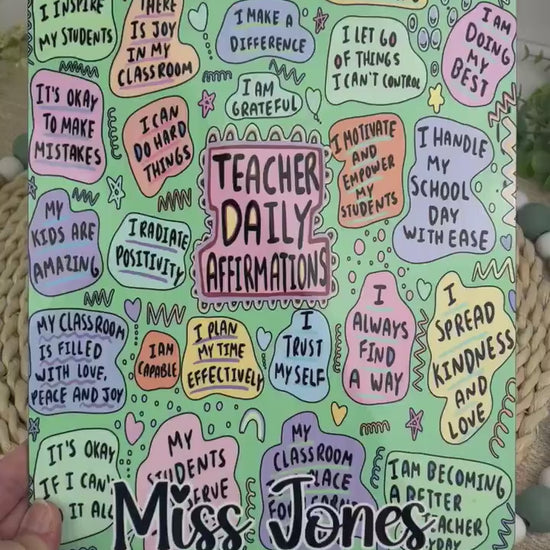 I INSPIRE
MY STUDENTS
THERE
IS JOY
IN MY
CLASSROOM
I MAKE A
DIFFERENCE
I LET GO
OF THINGS
I CAN'T CONTROL
I AM
DOING
MY
BEST
IT'S OKAY
TO MAKE
MISTAKES
I CAN
DO HARD
THINGS
I AM
GRATEFUL
I MOTIVATE
AND
EMPOWER
MY
STUDENTS
I HANDLE
MY
SCHOOL
DAY
WITH EASE
TEACHER
DAILY
AFFIRMATIONS
MY
KIDS ARE
AMAZING
I RADIATE
POSITIVITY
MY CLASSROOM
IS FILLED
WITH LOVE,
PEACE AND JOY
I AM
CAPABLE
I PLAN
MY TIME
EFFECTIVELY
I
TRUST
MYSELF
I
ALWAYS
FIND
A WAY
I
SPREAD
KINDNESS
AND
LOVE
IT'S OKAY
IF I CAN'
IT ALL
MY
STUDENTS
MY
CLASSROOM
I AM BECOMING
A BETTER
TEACHER
Miss Jones